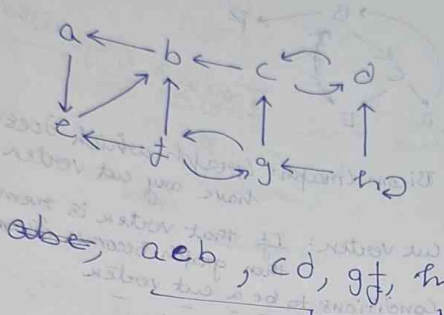 a b c d
e f g h
aeb, cd, gf, h